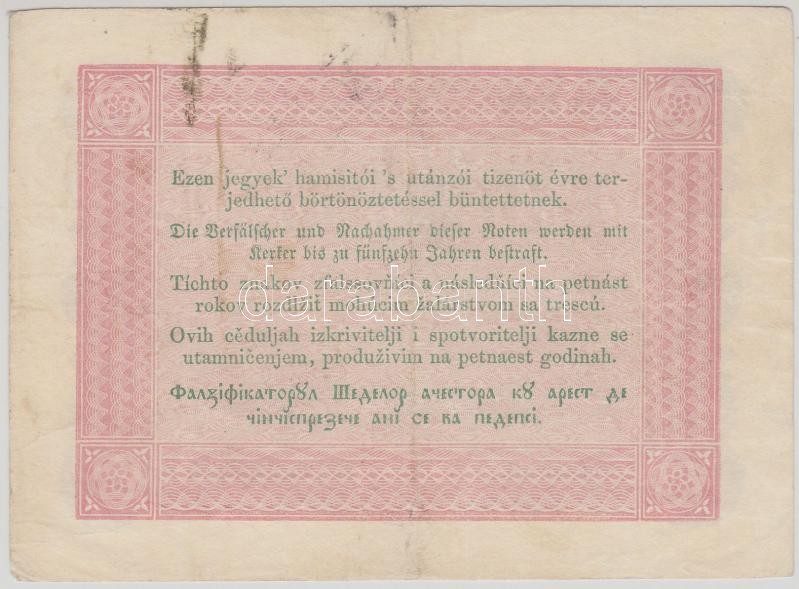 Ezen jegyek' hamisitói 's utánzói tizenöt évre ter-
jedhető börtönöztetéssel büntettetnek.
Die Verfälscher und Nachahmer dieser Noten werden mit
Kerker bis zu fünfzehn Jahren bestraft.
Tíchto znakov a následňíci na petnást
rokov rozdĺžiť mohúcim žalárstvom sa trescú.
Ovih cěduljah izkrivitelji i spotvoritelji kazne se
utamničenjem, produživim na petnaest godinah.
Фалзіфікаторꙋл Шеделор ачестора кꙋ арест де
чінчіспрезече ані се ва педепсі.
darabanth